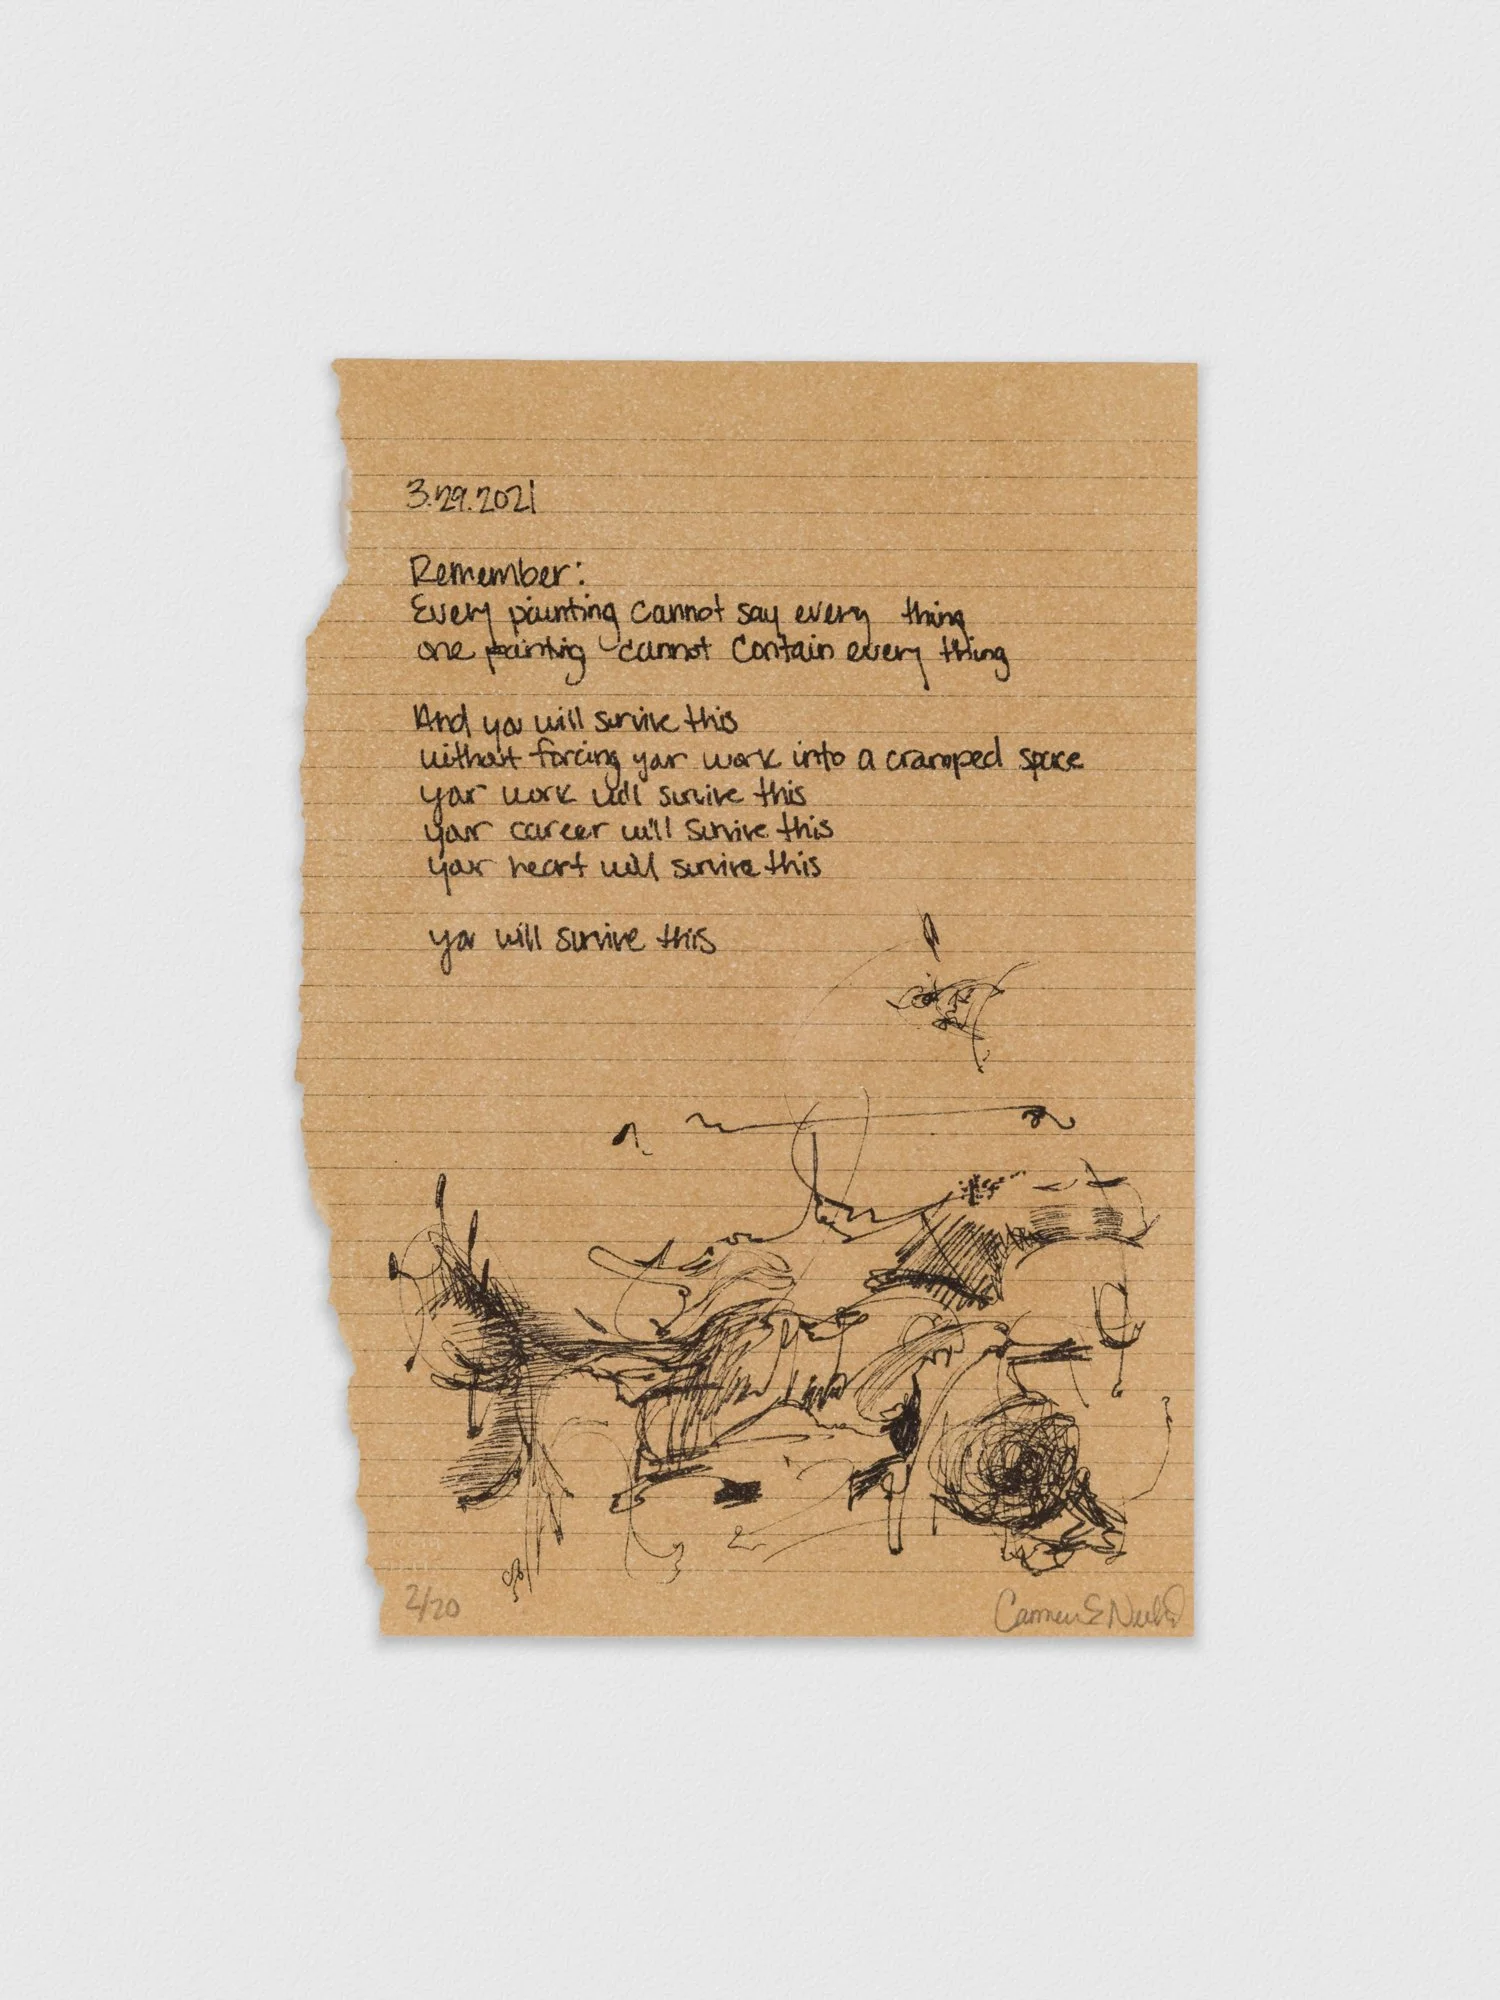 3.29.2021
Remember:
Every painting cannot say every thing
one painting cannot contain every thing
And you will survive this
without forcing your work into a cramped space
your work will survive this
your career will survive this
your heart will survive this
you will survive this
2/20
Carmen